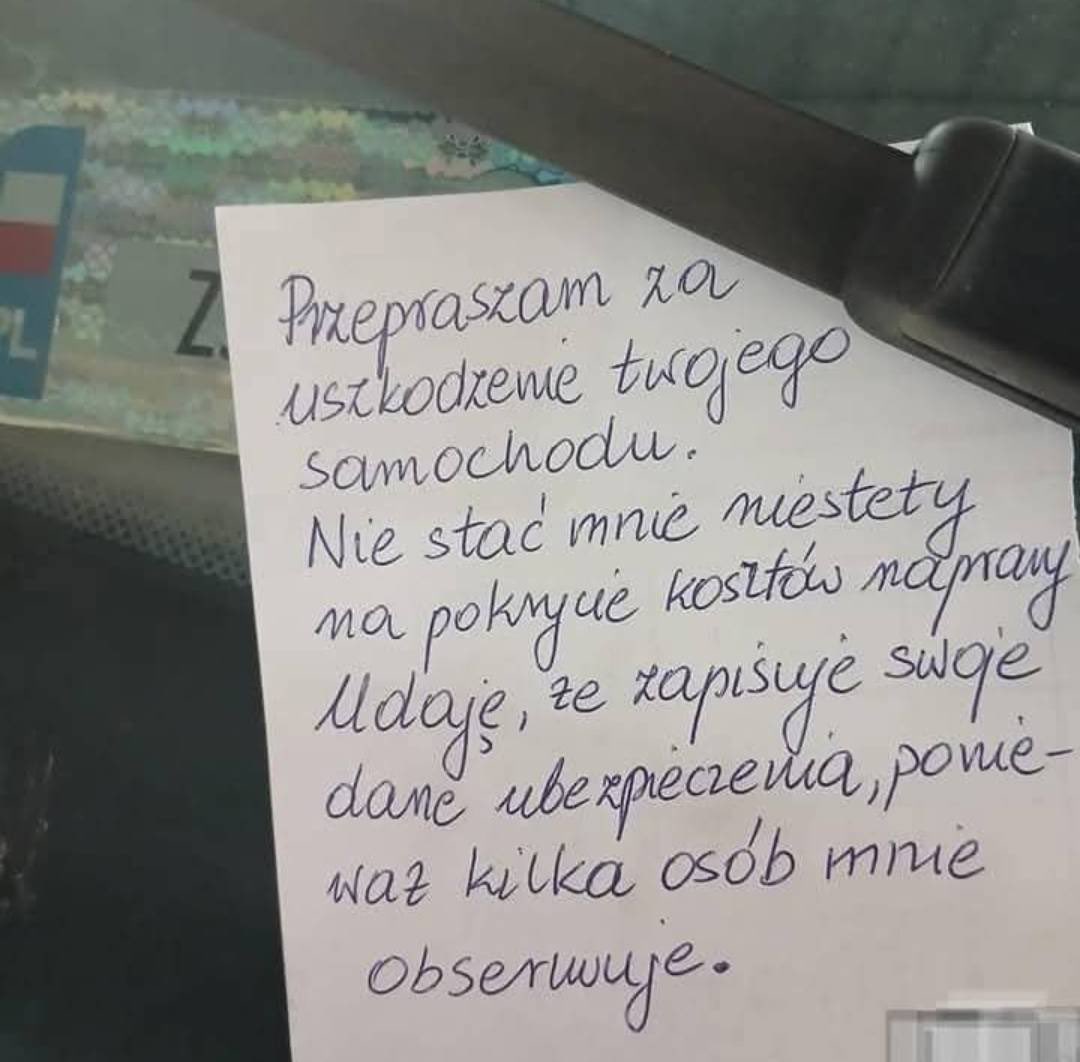 PL
Z
Przepraszam za
uszkodzenie twojego
samochodu.
Nie stać mnie niestety
na pokrycie kosztów naprawy
Udaję, że zapisuje swoje
dane ubezpieczenia, ponie-
waż kilka osób mnie
obserwuje.